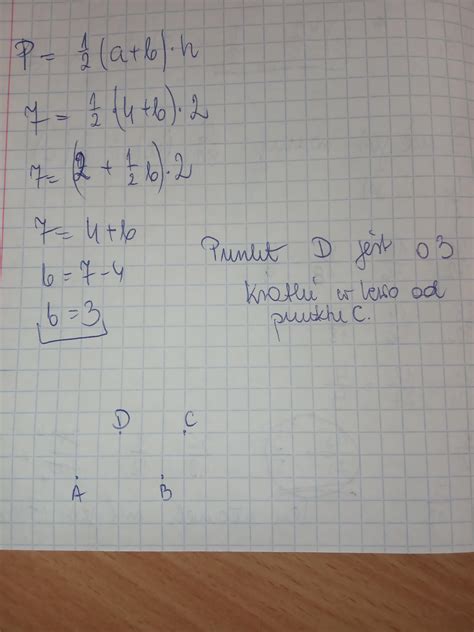 P = 1/2 (a+b)·h
7 = 1/2 (4+b)·2
7 = (2 + 1/2 b)·2
7 = 4+b
b = 7-4
b = 3
Punkt D jest o 3
kratki w lewo od
punktu C.
D C
A B